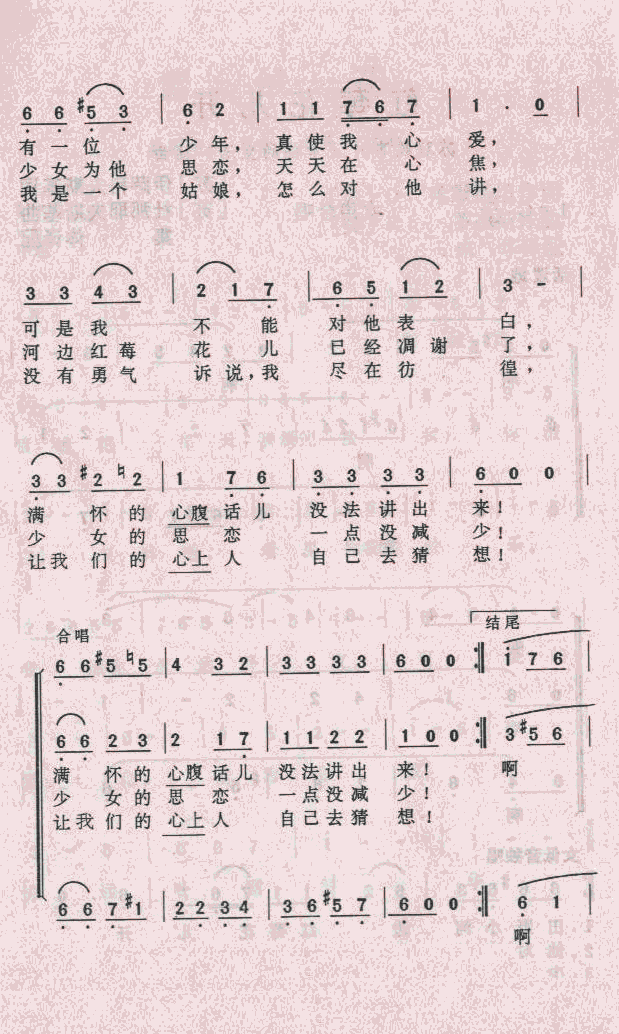 6 6 #5 3 | 6 2 | 1 1 7 6 7 | 1 · 0 |
有一位 少年，真使我 心 爱，
少女为他 思恋，天天在 心 焦，
我是一个 姑娘，怎么对 他 讲，
3 3 4 3 | 2 1 7 | 6 5 1 2 | 3 - |
可是我 不 能 对他表 白，
河边红莓 花 儿 已经凋谢 了，
没有勇气 诉说，我 尽在彷 徨，
3 3 #2 ♮2 | 1 7 6 | 3 3 3 3 | 6 0 0 |
满 怀的 心腹话儿 没法讲出 来！
少 女的 思 恋 一点没减 少！
让我们的 心上人 自己去猜 想！
合唱 结尾
6 6 #5 ♮5 | 4 3 2 | 3 3 3 3 | 6 0 0 :‖ i 7 6 |
6 6 2 3 | 2 1 7 | 1 1 2 2 | 1 0 0 :‖ 3 #5 6 |
满 怀的 心腹话儿 没法讲出 来！ 啊
少 女的 思 恋 一点没减 少！
让我们的 心上人 自己去猜 想！
6 6 7 #1 | 2 2 3 4 | 3 6 #5 7 | 6 0 0 :‖ 6 1 |
啊